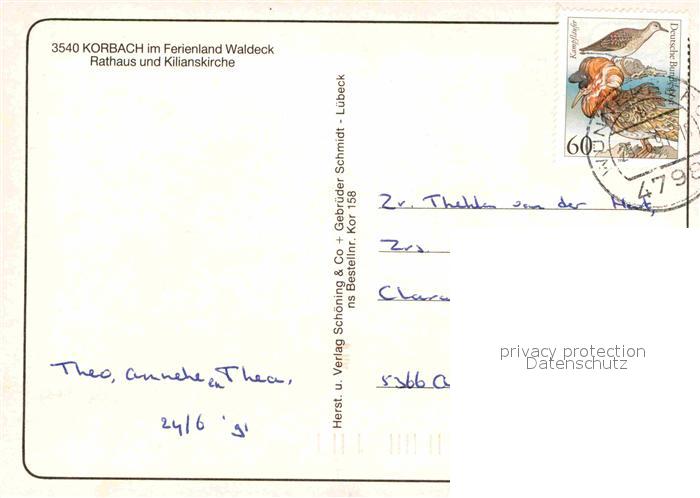 3540 KORBACH im Ferienland Waldeck
Rathaus und Kilianskirche
Kampfläufer
Deutsche Bundespost
60
WÜNN
4798
Herst. u. Verlag Schöning & Co + Gebrüder Schmidt - Lübeck
ns Bestellnr. Kor 158
Zr. van der
Zrs.
Clara
5366
privacy protection
Datenschutz
Theo, en Thea.
24/6 '91